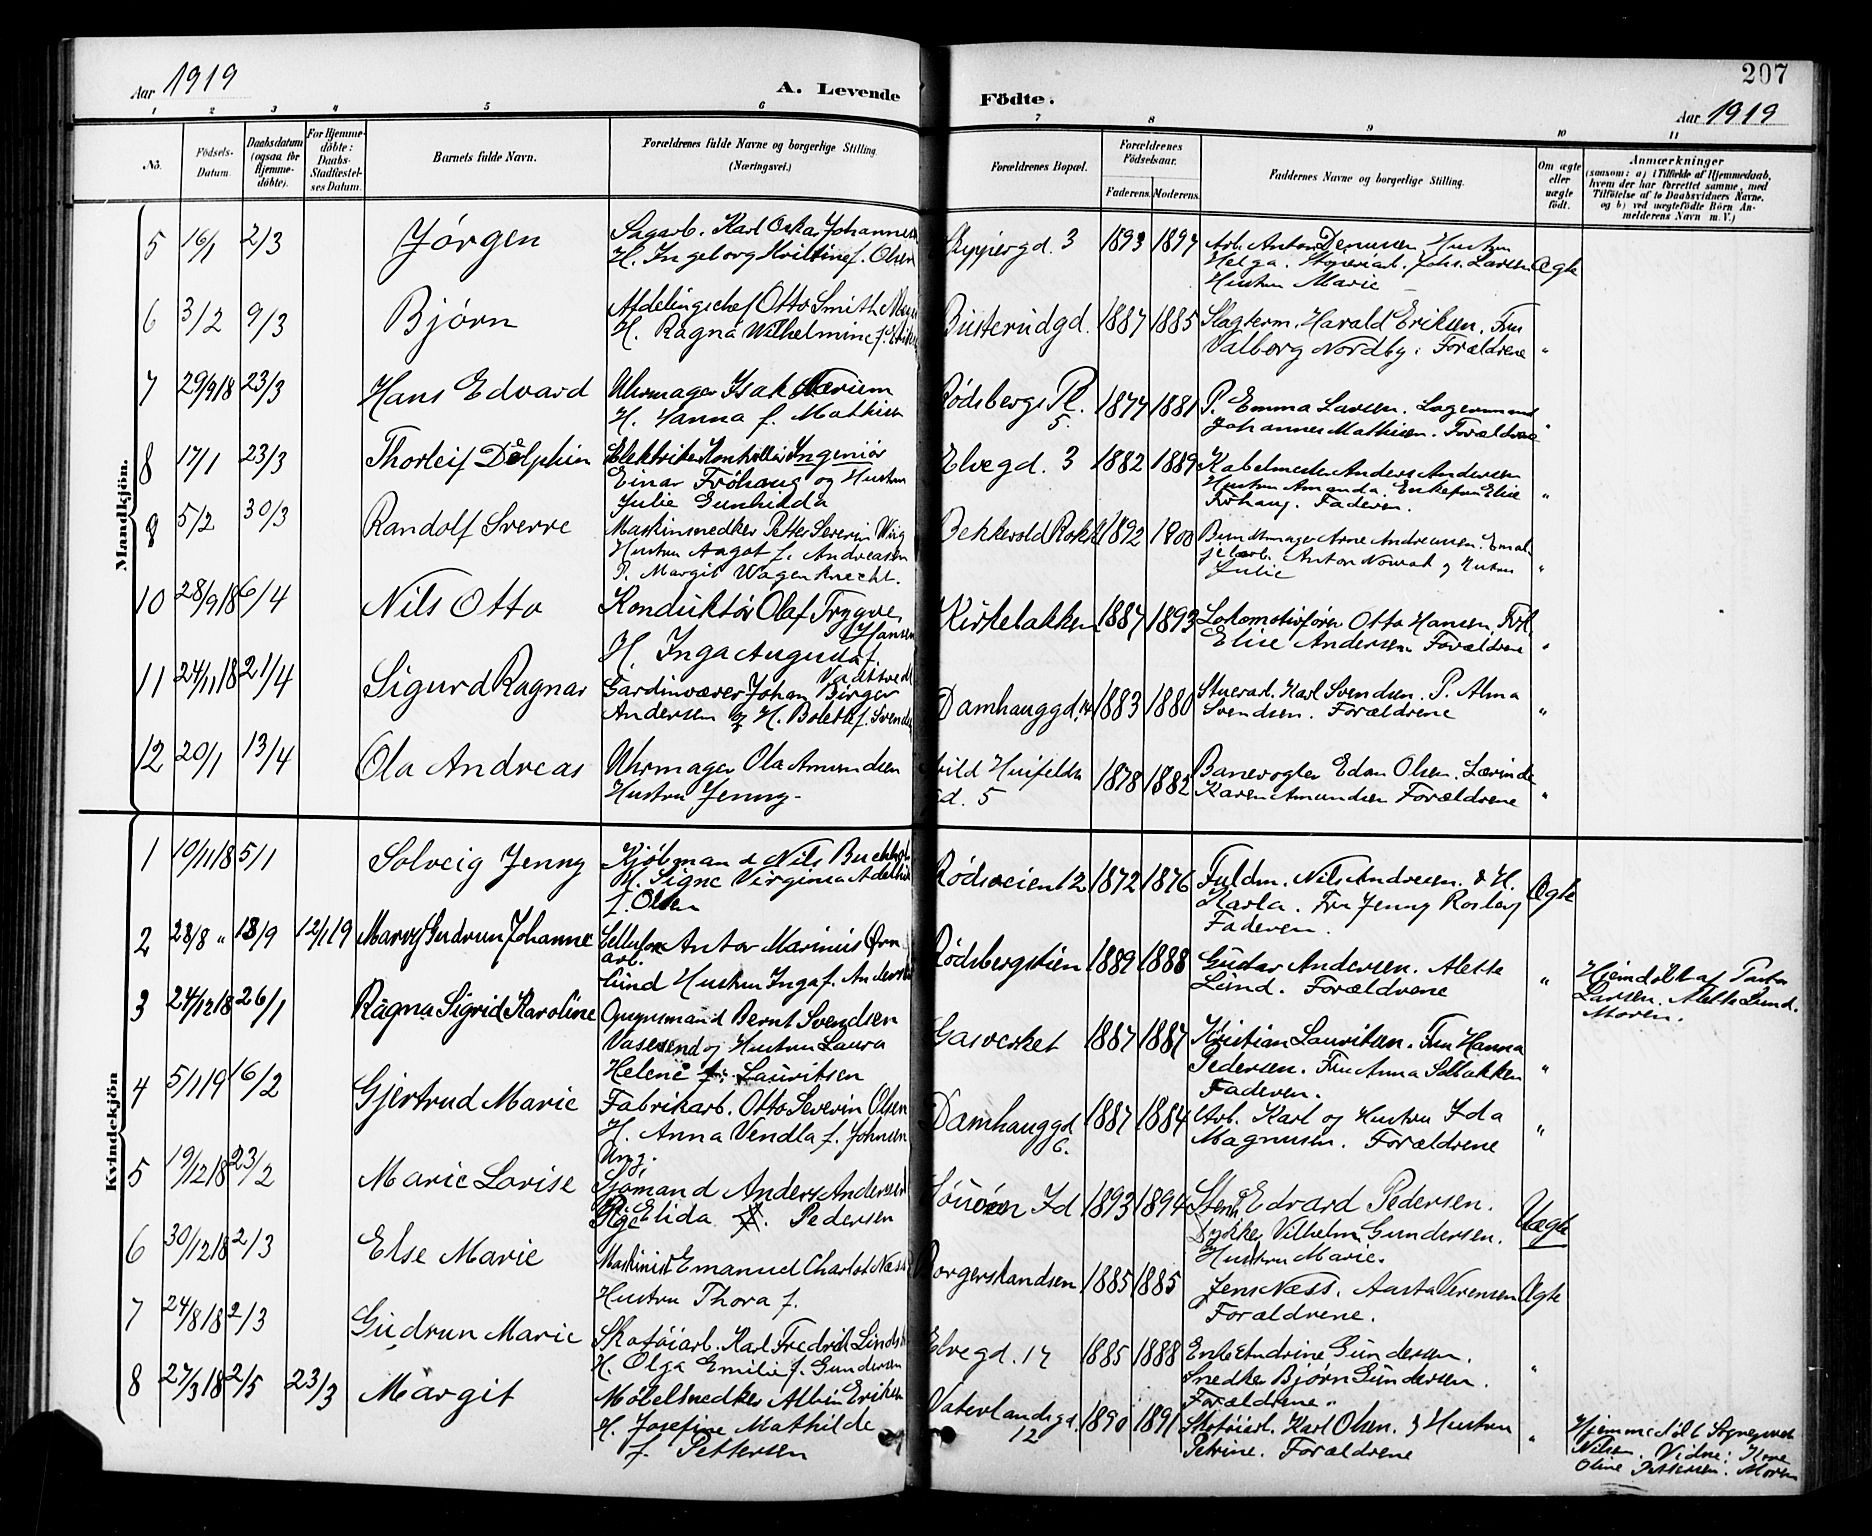 Aar 1919
A. Levende
Födte.
207
Aar 1919
1 2 3 4 5 6 7 8 9 10 11
No.
Födsels-Datum.
Daabsdatum (ogsaa for Hjemmedöbte).
For Hjemmedöbte: Daabs-Stadfæstelses Datum.
Barnets fulde Navn.
Forældrenes fulde Navne og borgerlige Stilling (Næringsvei.)
Forældrenes Bopæl.
Forældrenes Födselsaar.
Faderens. Moderens.
Faddernes Navne og borgerlige Stilling.
Om ægte eller uægte födt.
Anmærkninger
(saasom: a) i Tilfælde af Hjemmedaab, hvem der har forrettet samme, med Tilföielse af to Daabsvidners Navne. og b) ved uægtefödte Börn Anmelderens Navn m. V.)
Mandkjön.
5 16/1 2/3 Jørgen Sagarb. Karl Oskar Johannesen
H. Ingeborg Kristine f. Olsen
Skippergd. 3 1893 1897 Arb. Anton Hustru
Helga. Johs. Larsen Ægte
Hustru Marie
6 3/2 9/3 Bjørn Afdelingschef Otto Smith
H. Ragna Wilhelmine f.
Busterudgd. 1887 1885 Slagterm. Harald Eriksen. Fru
Valborg Nordby. Forældrene "
7 29/9 18 23/3 Hans Edvard Uhrmager Isak
H. Hanna f. Mathisen
Rødsbergs Pl. 5. 1877 1881 P. Emma Larsen. Lagermand
Johannes Mathisen. Forældrene "
8 17/1 23/3 Thorleif Delphin Elektriker Ingeniør
Einar Frøhaug og Hustru
Julie Gunhilda
Elvegd. 3 1882 1889 Kabelmester Anders Andersen
Hustru Amanda. Enkefru Elise
Frøhaug. Faderen. "
9 5/2 30/3 Randolf Sverre Maskinsnedker Petter Severin
Hustru Aagot f. Andreasen
P. Margit Wagenknecht.
1892 1900 Bundtmager Arne Andreassen.
Anton Nowak og Hustru
Julie "
10 28/9 18 6/4 Nils Otto Konduktør Olaf Trygve
Hansen
H. Inga Augusta f.
Kirkebakken 1887 1893 Lokomotivfører Otto Hansen, Frk.
Elise Andersen Forældrene "
11 24/11 18 21/4 Sigurd Ragnar Gardinvæver Johan Birger
Andersen og H. Bolette f. Svendsen
Damhauggd. 1883 1880 Stuerarb. Karl Svendsen. P. Alma
Svendsen. Forældrene "
12 20/1 13/4 Ola Andreas Uhrmager Ola Amundsen
Hustru Jenny
Arild Huitfeldts
gd. 5 1878 1882 Banevogter Edon Olsen.
Karen Amundsen Forældrene "
Kvindekjön
1 10/11 18 5/1 Solveig Jenny Kjøbmand Nils
H. Signe Virginia
f. Olsen
Rødsveien 12 1872 1876 Fuldm. Nils Andresen. & H.
Karla. Fru Jenny Rosberg
Faderen. Ægte
2 28/8 " 13/9 12/1 19 Marry Gudrun Johanne arb. Anton Marinius
Lund Hustru Inga f. Andersen
Rødsbergstien 1889 1888 Gustav Andersen. Alette
Lund. Forældrene "
Hjemdøbt af Pastor
Larsen. Alette Lund.
Moren.
3 24/12 18 26/1 Ragna Sigrid Karoline Opsynsmand Bernt Svendsen
Vasesend og Hustru Laura
Helene f. Lauritsen
Gasverket 1887 1887 Kristian Lauritsen. Fru Hanna
Pedersen. Fru Anna Solbakken
Faderen. "
4 5/1 19 16/2 Gjertrud Marie Fabrikarb. Otto Severin Olsen
H. Anna Vendla f. Johnsen
Damhauggd
6. 1887 1884 Arb. Karl og Hustru Ida
Magnusen. Forældrene "
5 19/12 18 23/2 Marie Lovise Ung.
Sjømand Anders Andersen
Pige Elida Pedersen
1893 1894 Edvard Pedersen.
Vilhelm Gundersen.
Hustru Marie. Uægte
6 30/12 18 2/3 Else Marie Maskinist Emanuel Charlot Næss
Hustru Thora f.
Borgerskandsen 1885 1885 Jens Næss. Aasta Sørensen
Forældrene. Ægte
7 24/8 18 2/3 Gudrun Marie Skotøiarb. Karl Fredrik
H. Olga Emilie f. Gundersen
Elvegd. 17 1885 1888 Enke Andrine Gundersen.
Snedker Bjørn Gundersen.
Forældrene. "
8 27/3 18 2/5 23/3 Margit Møbelsnedker Albin Eriksen
H. Josefine Mathilde
f. Pettersen
Vaterlandsgd.
12 1890 1891 Skotøiarb. Karl Olsen. & Hustru
Petrine. Forældrene "
Hjemmedøbt
Nilsen. Vidne: Kone
Oline Pettersen. Moren